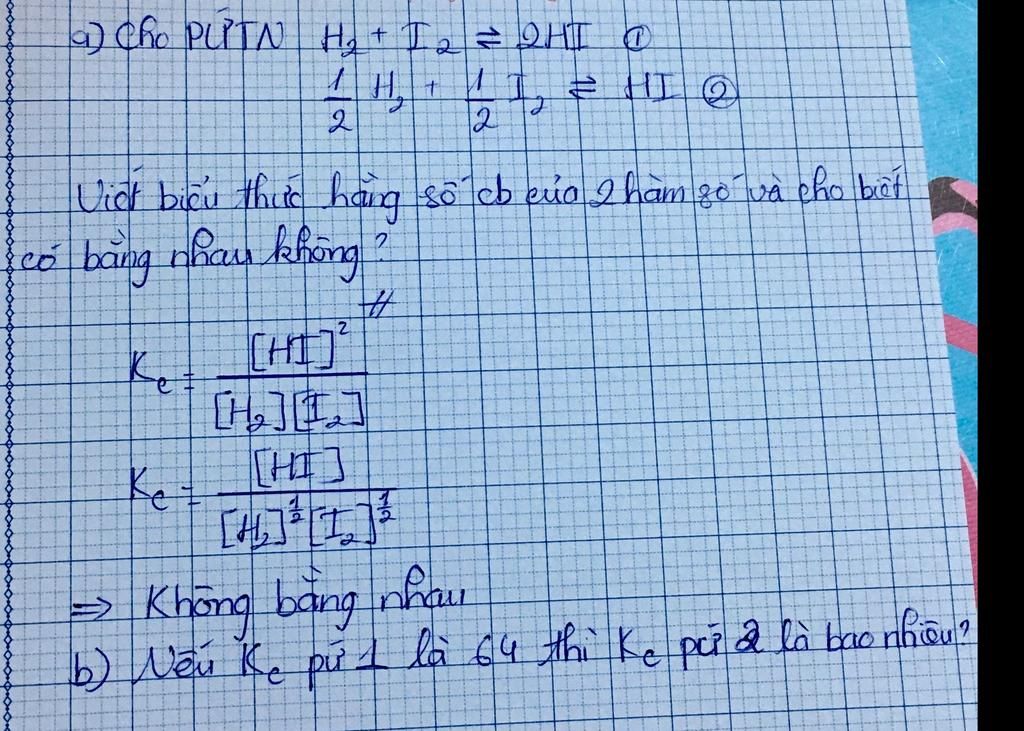 a) Cho PƯTN H₂ + I₂ ⇌ 2HI ①
½ H₂ + ½ I₂ ⇌ HI ②
Viết biểu thức hằng số cb của 2 hàm số và cho biết
có bằng nhau không?
H
Kc = [HI]² / [H₂][I₂]
Kc = [HI] / [H₂]^½ [I₂]^½
⇒ Không bằng nhau
b) Nếu Kc pứ 1 là 64 thì Kc pứ 2 là bao nhiêu?